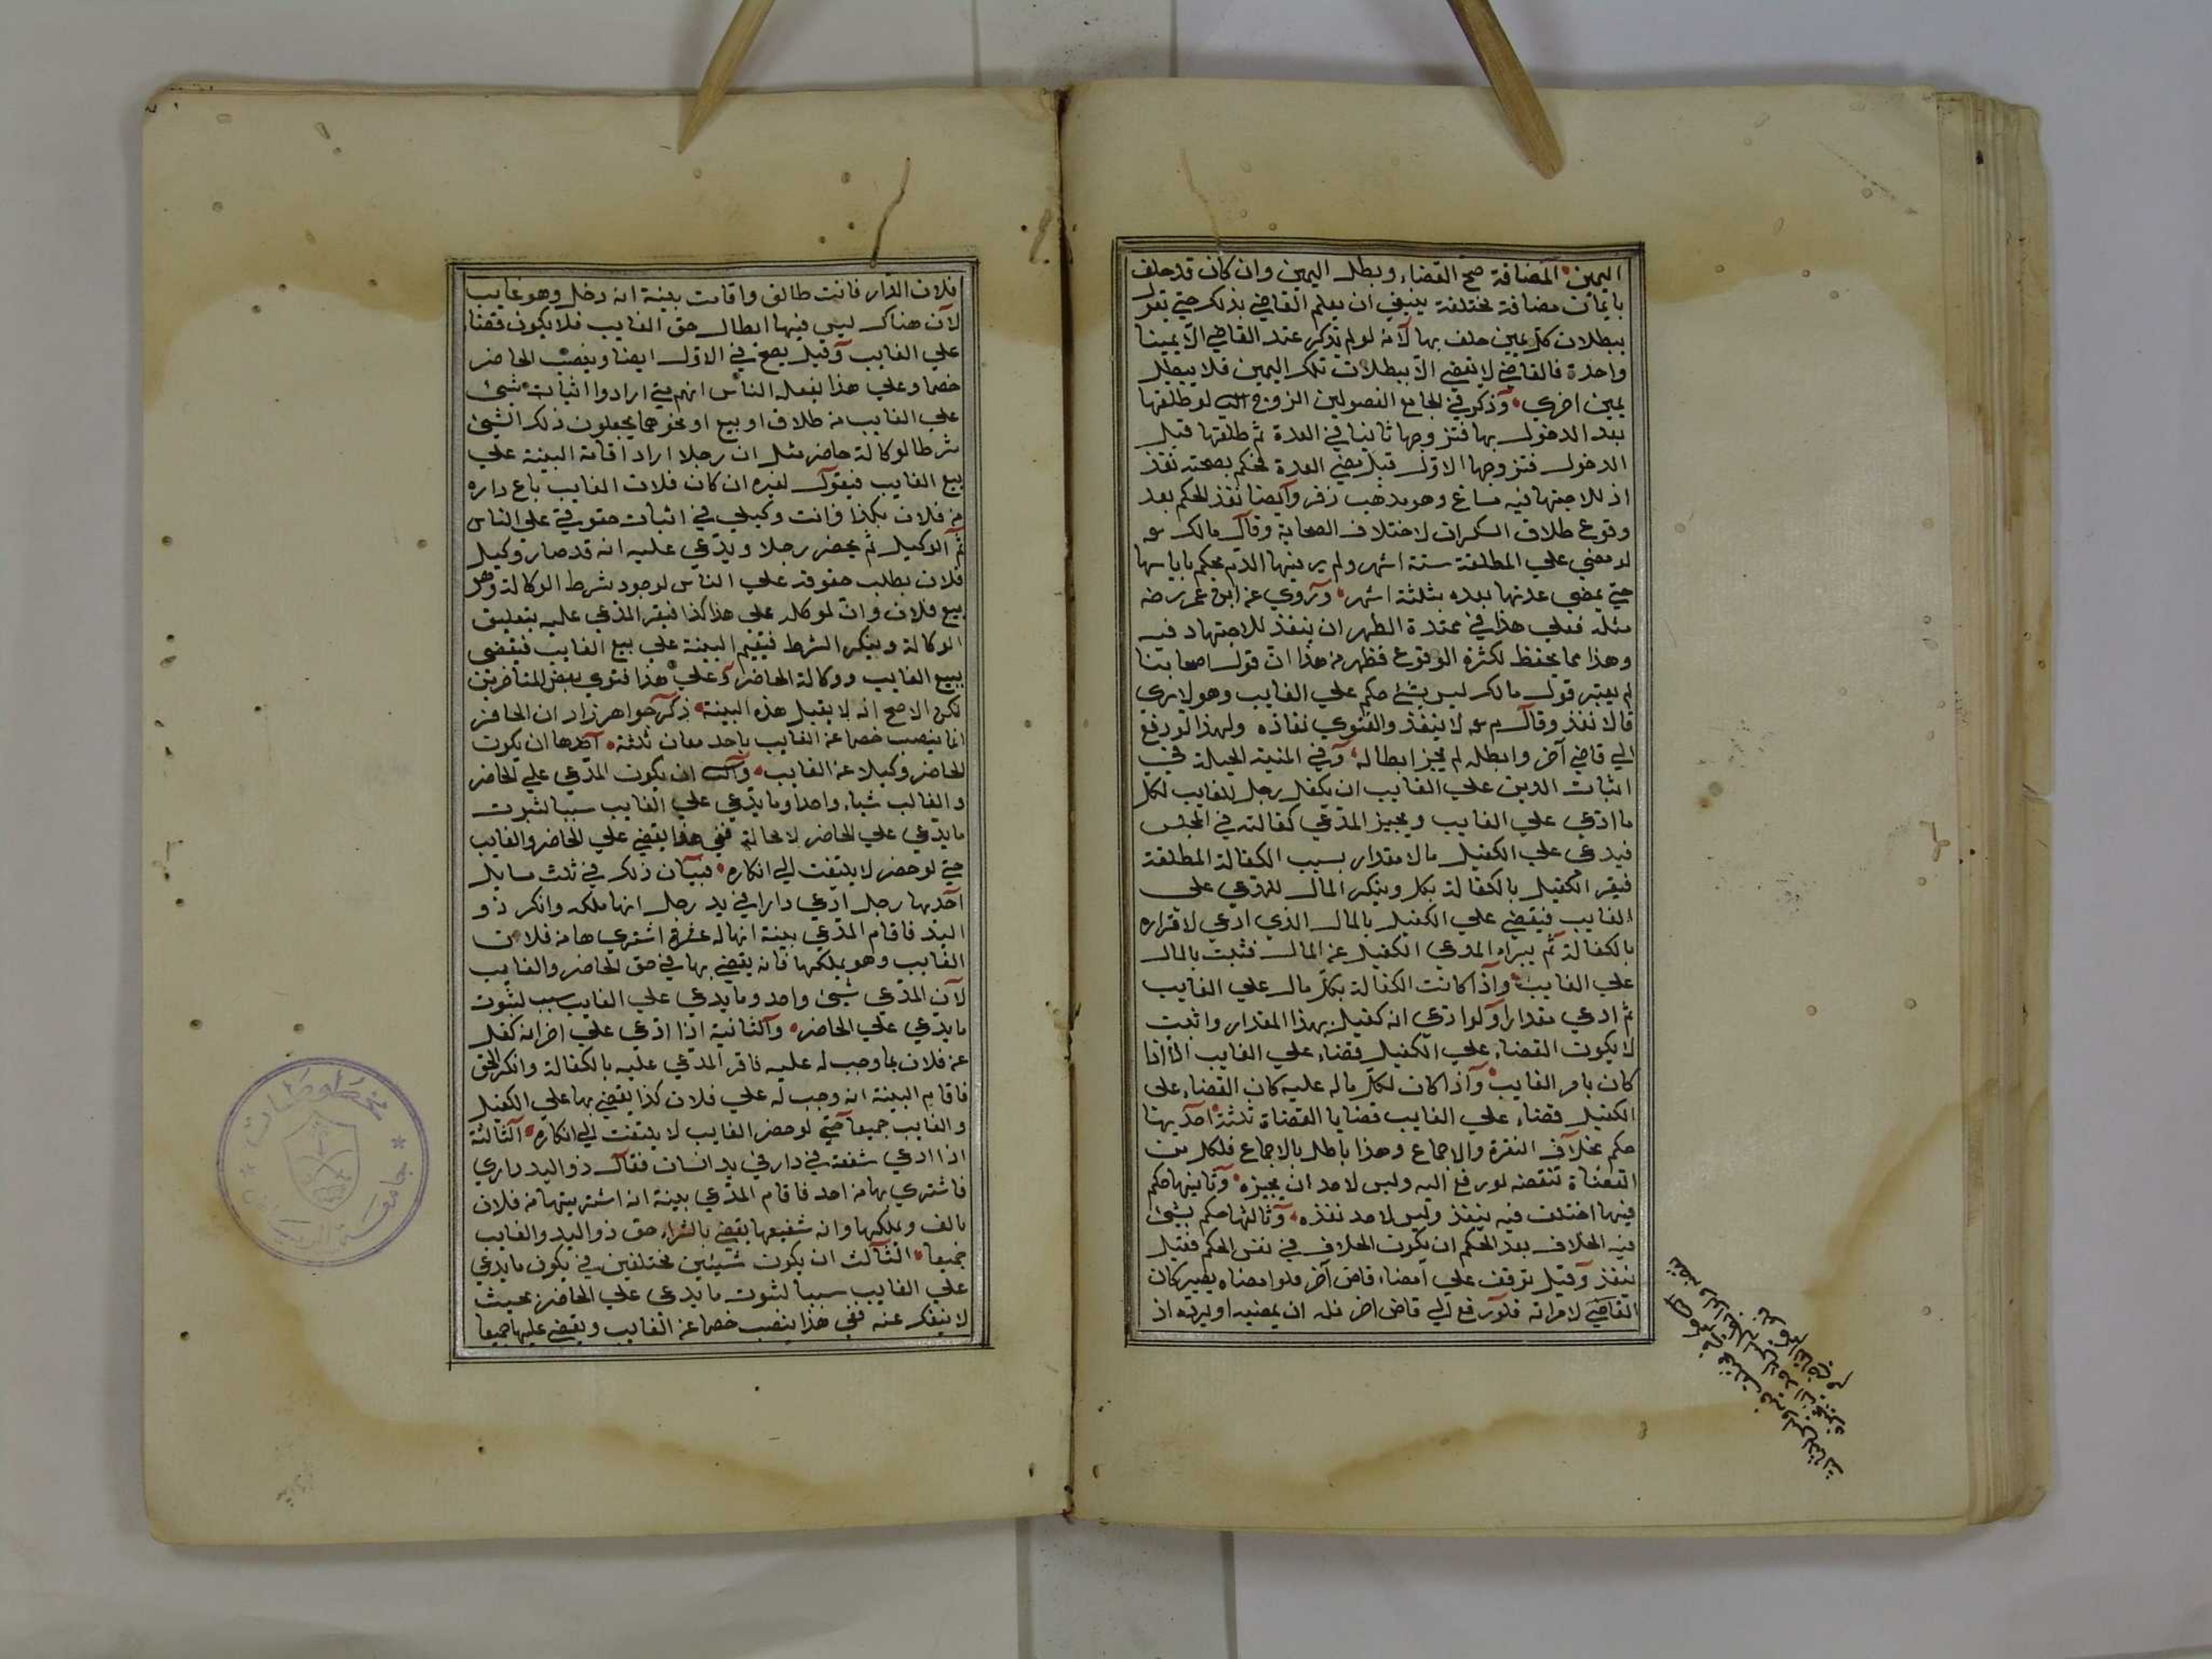 اليمين المضافة صح القضاء وبطل اليمين وان كان قد حلف
بايمان مضافة مختلفة ينبغي ان يعلم القاضي بذلك حتي يقول
ببطلان كل يمين حلف بها لانه لو لم يذكر عند القاضي الا يمينا
واحدة فالقاضي لا يقضي الا ببطلان تلك اليمين فلا يبطل
يمين اخري وذكر في الجامع الفصولين الزوج لو طلقها
بعد الدخول بها فتزوجها ثانيا في العدة ثم طلقها قبل
الدخول فتزوجها الاول قبل مضي العدة فحكم بصحته نفذ
اذ للاجتهاد فيه مساغ وهو مذهب زفر وايضا نفذ الحكم بعد
وقوع طلاق السكران لاختلاف الصحابة وقال مالك
لو مضي علي المطلقة ستة اشهر ولم ير فيها الدم يحكم باياسها
حتي يمضي عدتها بعده بثلثة اشهر وروي عن ابن عمر رضه
مثله فعلي هذا في ممتدة الطهر ان ينفذ للاجتهاد فيه
وهذا مما يحفظ لكثرة الوقوع فظهر من هذا ان قول اصحابنا
لم يعتبر قول مالك ليس بشئ حكم علي الغايب وهو لا يري
قالا نفذ وقال لا ينفذ والفتوي نفاذه ولهذا لو رفع
الي قاضي آخر وابطله لم يجز ابطاله وفي المنية الحيلة في
اثبات الدين علي الغايب ان يكفل رجل للغايب لكل
ما ادعي علي الغايب ويجيز المدعي كفالته في المجلس
فيدعي علي الكفيل مالا مقدار بسبب الكفالة المطلقة
فيقر الكفيل بالكفالة بكل وينكر المال للمدعي على
الغايب فيقضي علي الكفيل بالمال الذي ادعي لاقراره
بالكفالة ثم يبراء المدعي الكفيل عن المال فثبت بالمال
علي الغايب واذا كانت الكفالة بكل مال علي الغايب
ثم ادعي مقدارا ولو ادعي انه كفيل بهذا المقدار واثبت
لا يكون القضاء علي الكفيل قضاء علي الغايب الا اذا
كان بامر الغايب واذا كان لكل ماله عليه كان القضاء على
الكفيل قضاء علي الغايب قضايا القضاة ثلثة احديها
حكم بخلاف النقرة والاجماع وهذا باطل بالاجماع فلكل من
القضاة تنقضه لو رفع اليه وليس لاحد ان يجيزه وثانيها حكم
فيها اختلف فيه ينفذ وليس لاحد نفذه وثالثها حكم بشئ
فيه الخلاف بعد الحكم ان يكون الخلاف في نفس الحكم فقيل
ينفذ وقيل توقف علي امضاء قاض آخر فلو امضاه يصير كان
القاضي لامراته فلو رفع الي قاض اخر فله ان يمضيه او يرده اذ
فلان الدار فانت طالق واقامت بينة انه دخل وهو غايب
لان هناك ليس فيها ابطال حق الغايب فلا يكون قضاء
علي الغايب وقيل يصح في الاول ايضا وينصب الحاضر
خصما وعلي هذا يفعله الناس انهم متي ارادوا اثبات شيئ
علي الغايب من طلاق او بيع او نحوهما يجعلون ذلك الشيئ
شرطا لوكالة حاضر مثل ان رجلا اراد اقامة البينة علي
بيع الغايب فيقول لغيره ان كان فلان الغايب باع داره
من فلان بكذا فانت وكيلي في اثبات حقوقي علي الناس
ثم الوكيل ثم يحضر رجلا ويدعي عليه انه قد صار وكيل
فلان بطلب حقوقه علي الناس لوجود شرط الوكالة وهو
بيع فلان وان لموكله علي هذا كذا فيقر المدعي عليه بتعليق
الوكالة وينكر الشرط فيقيم البينة علي بيع الغايب فيقضي
ببيع الغايب ووكالة الحاضر وعلي هذا فتوي بعض المتاخرين
لكن الاصح انه لا يقبل هذه البينة ذكر خواهرزاد ان الحاضر
انما ينصب خصما عن الغايب باحد معان ثلثة احدها ان يكون
الحاضر وكيلا عن الغايب ان يكون المدعي علي الحاضر
والغايب شياء واحدا وما يدعي علي الغايب سببا لثبوت
ما يدعي علي الحاضر لا محالة ففي هذا يقضي علي الحاضر والغايب
حتي لو حضر لا يلتفت الي انكاره فبيان ذلك في ثلث مسايل
احديها رجل ادعي دارا في يد رجل انها ملكه وانكر ذو
اليد فاقام المدعي بينة انها له اشتري ها من فلان
الغايب وهو يملكها فانه يقضي بها في حق الحاضر والغايب
لان المدعي شيئ واحد وما يدعي علي الغايب سبب لثبوت
ما يدعي علي الحاضر والثانية اذا ادعي علي اخر انه كفل
عن فلان بما وجب له عليه فاقر المدعي عليه بالكفالة وانكر الحق
فاقام البينة انه وجب له علي فلان كذا يقضي بها علي الكفيل
والغايب جميعا حتي لو حضر الغايب لا يلتفت الي انكاره الثالثة
اذا ادعي شفعة في دار في يد انسان فقال ذو اليد داري
فاشتري بها من احد فاقام المدعي بينة انه اشتريتها من فلان
بالف ويملكها وانه شفيعها يقضي بالشراء حق ذو اليد والغايب
جميعا الثالث ان يكون شيئين مختلفين في يكون ما يدعي
علي الغايب سببا لثبوت ما يدعي علي الحاضر بحيث
لا ينفك عنه ففي هذا ينصب خصما عن الغايب ويقضي عليهما جميعا
مخطوطات
جامعة